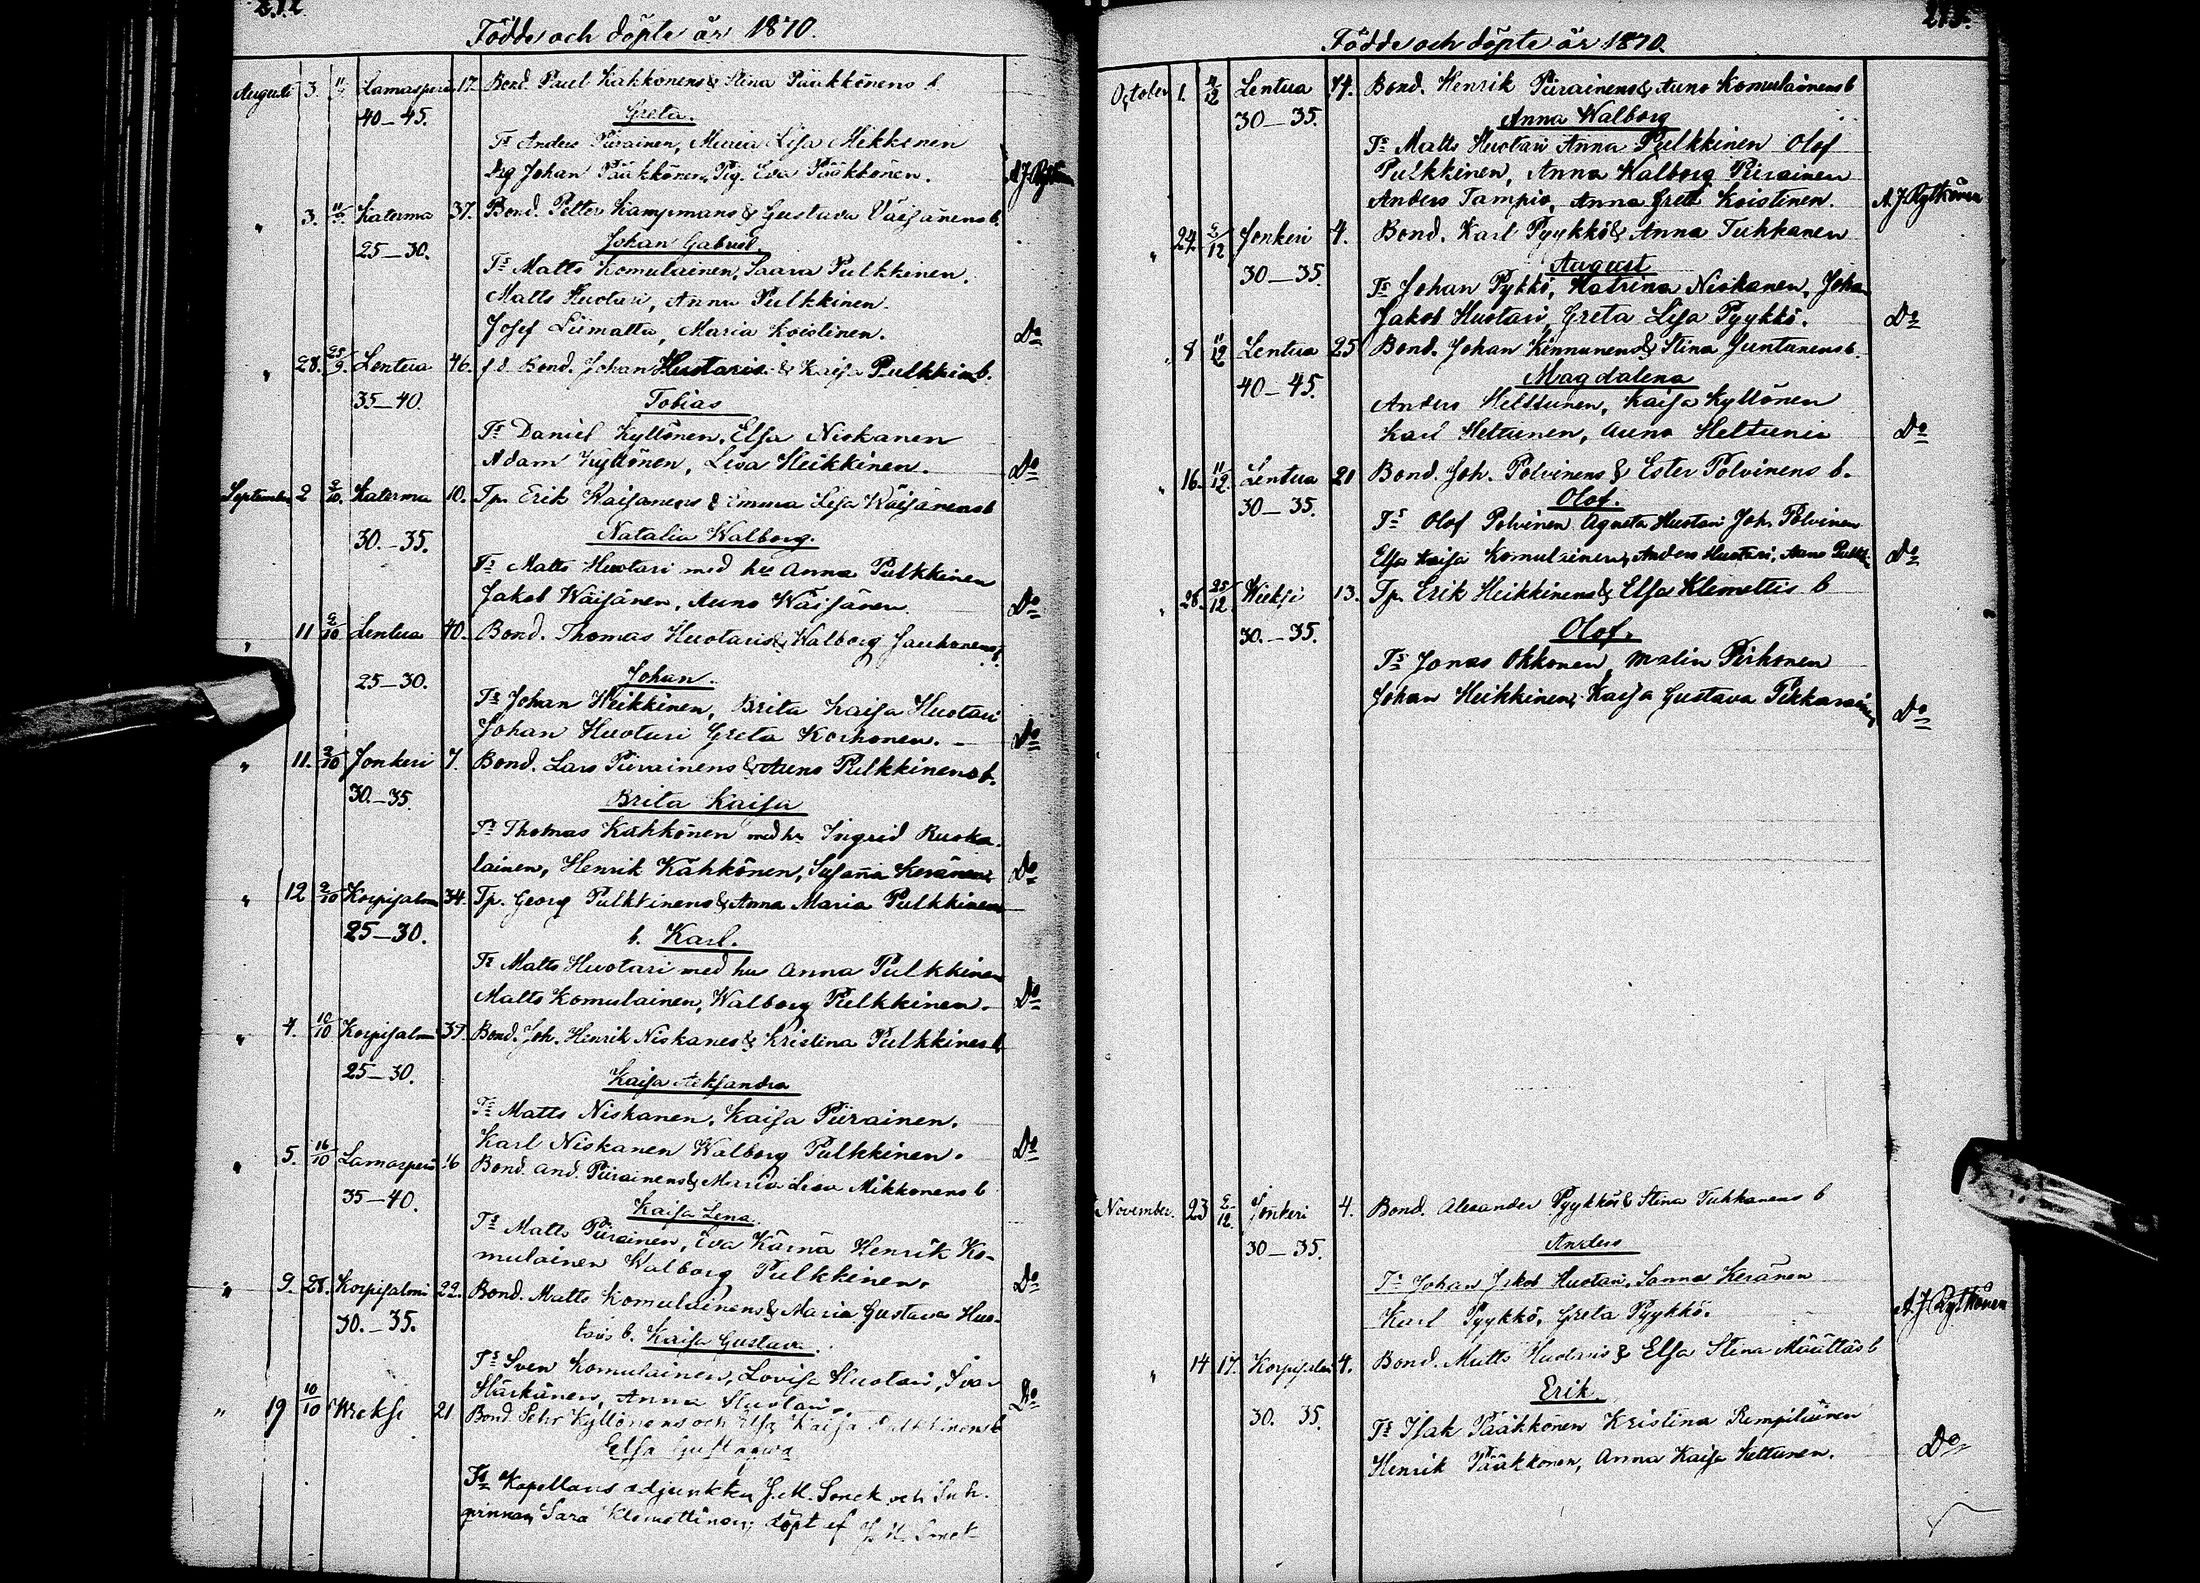 212
Födde och döpte år 1870.
Augusti 3. Lamasperä 17. Bond. Paul Kähkönens & Stina Pääkkönens b.
40–45. Greta.
Ts Anders Piirainen, Maria Lisa Mikkonen
Drg Johan Pääkkönen, Pig. Eva Pääkkönen.
" 3. Katerma 37. Bond. Petter Kampmans & Gustava Väisänens b.
25–30. Johan Gabriel.
Ts Matts Komulainen, Saara Pulkkinen.
Matts Huotari, Anna Pulkkinen.
Josef Liimatta, Maria Koistinen. Do
" 28. 25/9. Lentua 46. f.d. Bond. Johan Huotaris & Kaisa Pulkkin b.
35–40. Tobias
Ts Daniel Kyllönen, Elsa Niskanen
Adam Kyllönen, Lisa Heikkinen. Do
September 2 2/10. Katerma 10. Tp. Erik Waisanens & Emma Lisa Wäisänens b
30.–35. Natalia Walborg.
Ts Matts Huotari med hu Anna Pulkkinen
Jakob Wäisänen, Auno Wäisänen. Do
" 11 2/10 Lentua 40. Bond. Thomas Huotaris & Walborg Jauhonens b.
25–30. Johan.
Ts Johan Heikkinen, Brita Kaisa Huotari
Johan Huotari Greta Korhonen. Do
" 11. 2/10 Jonkeri 7. Bond. Lars Piirainens & Auno Pulkkinens b.
30.–35. Brita Kaisa
Ts Thomas Kähkönen med hu Ingrid Ruoka-
lainen, Henrik Kähkönen, Susanna Keränen Do
" 12 2/10 Korpisalmi 34. Tp. Georg Pulkkinens & Anna Maria Pulkkinens
25–30. b. Karl.
Ts Matts Huotari med hu Anna Pulkkinen
Matts Komulainen, Walborg Pulkkinen. Do
" 4. 10/10 Korpisalmi 39. Bond. Joh. Henrik Niskanes & Kristina Pulkkines b
25–30. Kaisa Aleksandra
Ts Matts Niskanen, Kaisa Piirainen.
Karl Niskanen Walborg Pulkkinen. Do
" 5. 16/10 Lamasperä 16 Bond. And. Piirainens & Maria Lisa Mikkonens b
35–40. Kaisa Lena.
Ts Matts Piirainen, Eva Kärnä Henrik Ko-
mulainen Walborg Pulkkinen. Do
" 9. 28. Korpisalmi 22. Bond. Matts Komulainens & Maria Gustava Huo-
30.–35. taris b. Kaisa Gustava.
Ts Sven Komulainen, Lovisa Huotari, Ivar
Härkönen, Anna Huotari. Do
" 19 10/10 Wieksi 21 Bond. Kyllönens och Elsa Kaisa Pulkkinens b
Elsa Gustaava
Ts Kapellans adjunkten J. M. Sonck och
Sara Klemettinen; döpt af J. M. Sonck
Födde och döpte år 1870.
October 1. 4/12 Lentua 14. Bond. Henrik Piirainens & Auno Komulainens b
30–35. Anna Walborg
Ts Matts Huotari Anna Pulkkinen Olof
Pulkkinen, Anna Walborg Piirainen
Anders Tampio, Anna Greta Koistinen. A J Rytkönen
" 24. 2/12 Jonkeri 4. Bond. Karl Pyykkö & Anna Tuhkanen
30–35. August
Ts Johan Pykkö, Katrina Niskanen, Johan
Jakob Huotari, Greta Lisa Pyykkö. Do
" 8 11/12 Lentua 25 Bond. Johan Kinnunens & Stina Juntunens b.
40–45. Magdalena
Anders Helttunen, Kaisa Kyllönen
Karl Heltunen, Auno Heltunen Do
" 16. 11/12. Lentua 21 Bond. Joh. Polvinens & Ester Polvinens b.
30–35. Olof.
Ts Olof Polvinen Agneta Huotari Joh. Polvinen
Elsa Kaisa Komulainen, Anders Huotari, Do
" 28. 25/12. Wieksi 13. Tp. Erik Heikkinens & Elsa Klemettis b
30.–35. Olof.
Ts Jonas Okkonen, Malin Pirhonen
Johan Heikkinen, Kaisa Gustava Pikkarainen Do
November. 23 2/12. Jonkeri 4. Bond. Alexander Pyykkös & Stina Tuhkanens b
30–35. Anders
Ts Johan Jakob Huotari, Sanna Keränen
Karl Pyykkö, Greta Pyykkö. A J Rytkönen
" 14 17. Korpisalmi 4. Bond. Matts Huotaris & Elsa Stina Määttäs b
30. 35. Erik.
Ts Isak Pääkkönen Kristina Rimpiläinen
Henrik Pääkkönen, Anna Kaisa Helttunen. Do